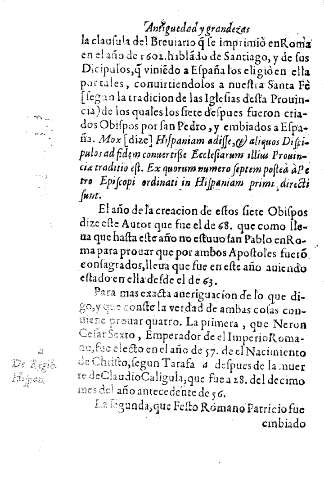 Antiguedad y grandezas
la clausula del Breuiario q̃ se imprimiò en Roma
en el año de 1602. hablãdo de Santiago, y de sus
Dicipulos, q̃ viniẽdo a España los eligiò en ella
por tales, conuirtiendolos a nuestra Santa Fè
[segun la tradicion de las Iglesias desta Prouin
cia) de los quales los siete despues fueron cria-
dos Obispos por san Pedro, y embiados a Espa-
ña. Mox [dize] Hispaniam adisse, & aliquos Disci-
pulos ad fidem conuertisse Ecclesiarum illius Prouin-
cia traditio est. Ex quorum numero septem posteà à Pe
tro Episcopi ordinati in Hispaniam prime directi
sunt.
El año de la creacion de estos siete Obispos
dize este Autor que fue el de 68. que como lle-
ua que hasta este año no estuuo san Pablo en Ro-
ma para prouar que por ambos Apostoles fuerõ
cõsagrados, lleua que fue en este año auiendo
estado en ella desde el de 63.
Para mas exacta aueriguacion de lo que di-
go, y que conste la verdad de ambas cosas con-
uiene prouar quatro. La primera, que Neron
Cesar Sexto, Emperador de el Imperio Roma-
no, fue electo en el año de 57. de el Nacimiento
de Christo, segun Tarafa a despues de la muer
re de Claudio Caligula, que fue a 28. del decimo
mes del año antecedente de 56.
La segunda, que Festo Romano Patricio fue
embiado
a
De Regib.
Hispan.